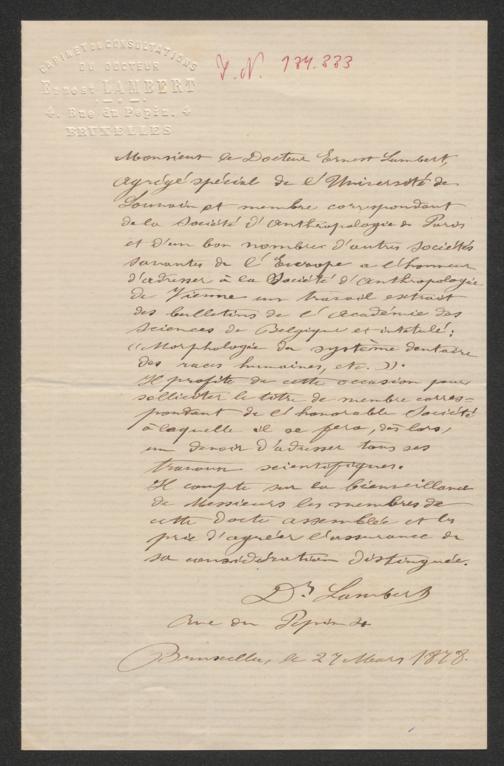 CABINET DE CONSULTATIONS
DU DOCTEUR
Ernest LAMBERT
4. Rue du Pepin. 4
BRUXELLES
J. N. 134.333
Monsieur le Docteur Ernest Lambert,
agrégé spécial de l'Université de
Louvain et membre correspondant
de la Société d'Anthropologie de Paris
et d'un bon nombre d'autres sociétés
savantes de l'Europe a l'honneur
d'adresser à la Société d'Anthropologie
de Vienne un travail extrait
des bulletins de l'Académie des
sciences de Belgique et intitulé:
"Morphologie du système dentaire
des races humaines, etc. ".
Il profite de cette occasion pour
solliciter le titre de membre corres=
pondant de l'honorable Société
à laquelle il se fera, dès lors,
un devoir d'adresser tous ses
travaux scientifiques.
Il compte sur la bienveillance
de Messieurs les membres de
cette docte assemblée et les
prie d'agréer l'assurance de
sa considération distinguée.
Dr Lambert
rue du Pepin 4
Bruxelles, le 27 Mars 1878.